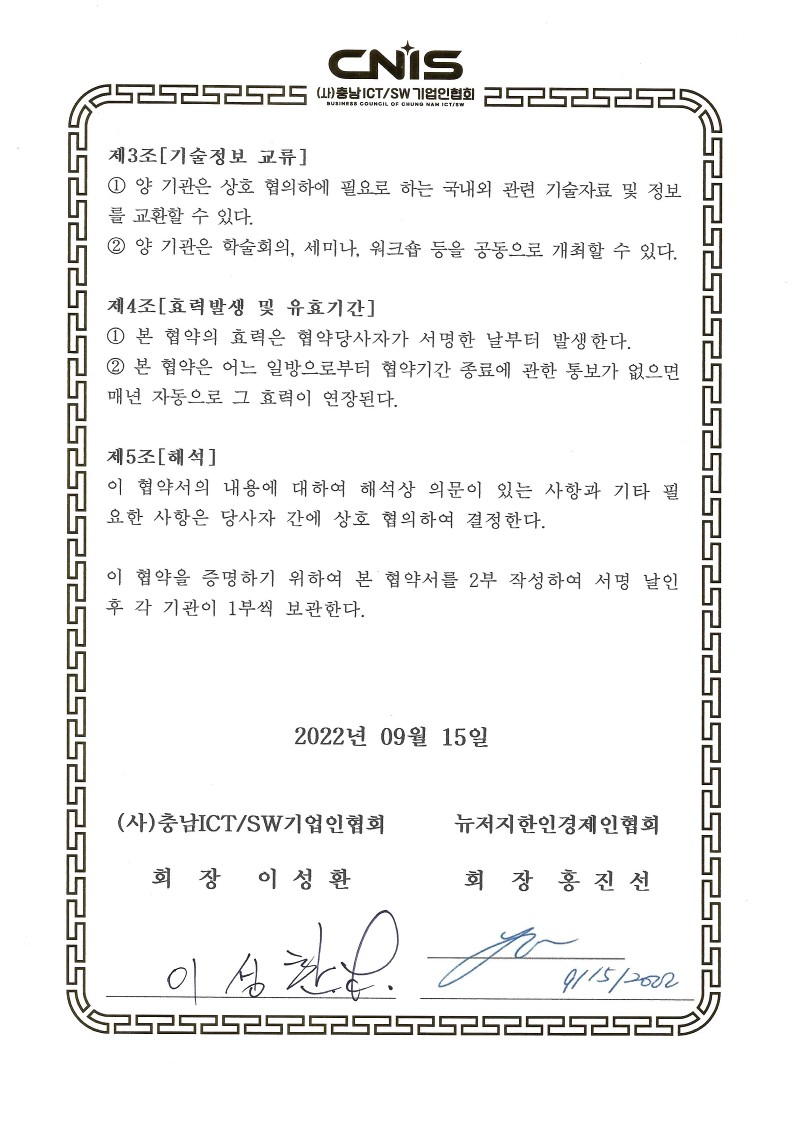 CNIS
(사)충남ICT/SW기업인협회
BUSINESS COUNCIL OF CHUNG NAM ICT/SW
제3조[기술정보 교류]
① 양 기관은 상호 협의하에 필요로 하는 국내외 관련 기술자료 및 정보
를 교환할 수 있다.
② 양 기관은 학술회의, 세미나, 워크숍 등을 공동으로 개최할 수 있다.
제4조[효력발생 및 유효기간]
① 본 협약의 효력은 협약당사자가 서명한 날부터 발생한다.
② 본 협약은 어느 일방으로부터 협약기간 종료에 관한 통보가 없으면
매년 자동으로 그 효력이 연장된다.
제5조[해석]
이 협약서의 내용에 대하여 해석상 의문이 있는 사항과 기타 필
요한 사항은 당사자 간에 상호 협의하여 결정한다.
이 협약을 증명하기 위하여 본 협약서를 2부 작성하여 서명 날인
후 각 기관이 1부씩 보관한다.
2022년 09월 15일
(사)충남ICT/SW기업인협회 뉴저지한인경제인협회
회 장 이 성 환 회 장 홍 진 선
이 성 환
9/15/2022